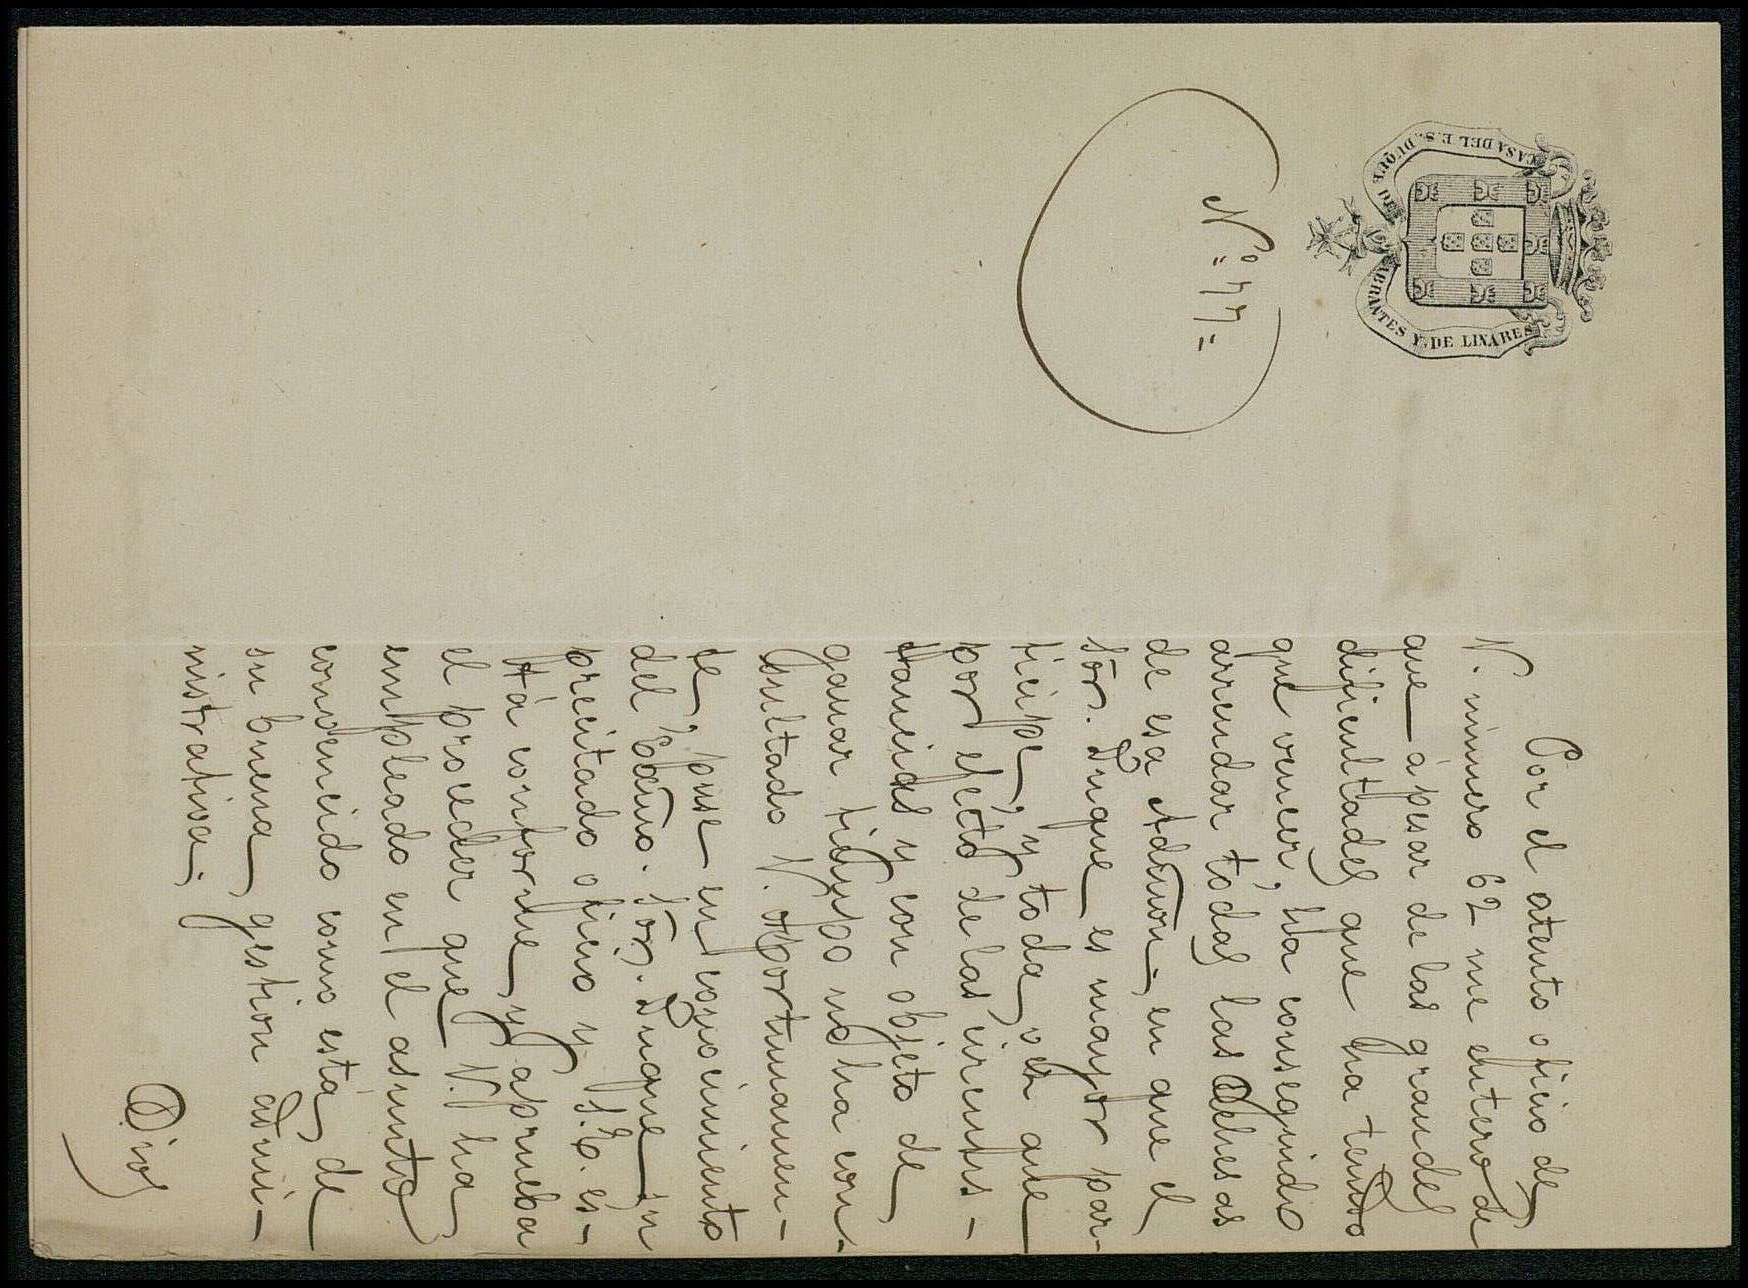 CASA DEL E. S. DUQUE DE ABRANTES Y DE LINARES
Nº = 77 =
Por el atento oficio de
V. número 62 me entero de
que á pesar de las grandes
dificultades que ha tenido
que vencer, ha conseguido
arrendar todas las dehesas
de esa Admon. en que el
Sor. Duque es mayor par-
tícipe, y toda vez que
por efecto de las circuns-
tancias y con objeto de
ganar tiempo no ha con-
sultado V. oportunamen-
te, puse en conocimiento
del Excmo. Sor. Duque su
precitado oficio y S.E. es-
tá conforme y aprueba
el proceder que V. ha
empleado en el asunto
convencido como está de
su buena gestion admi-
nistrativa.
Dios